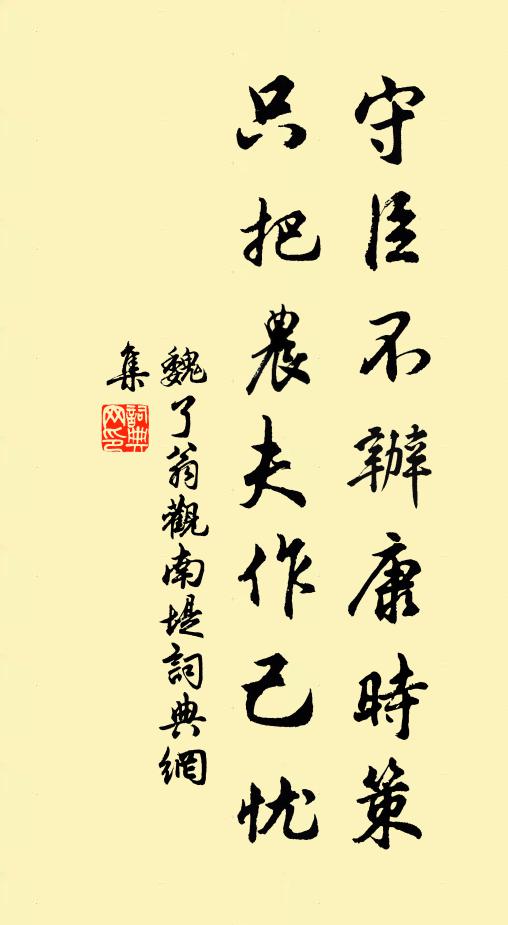 守臣不辦康時策
只把農夫作己忧
魏了翁觀南堤詞典網
集
詞典网印